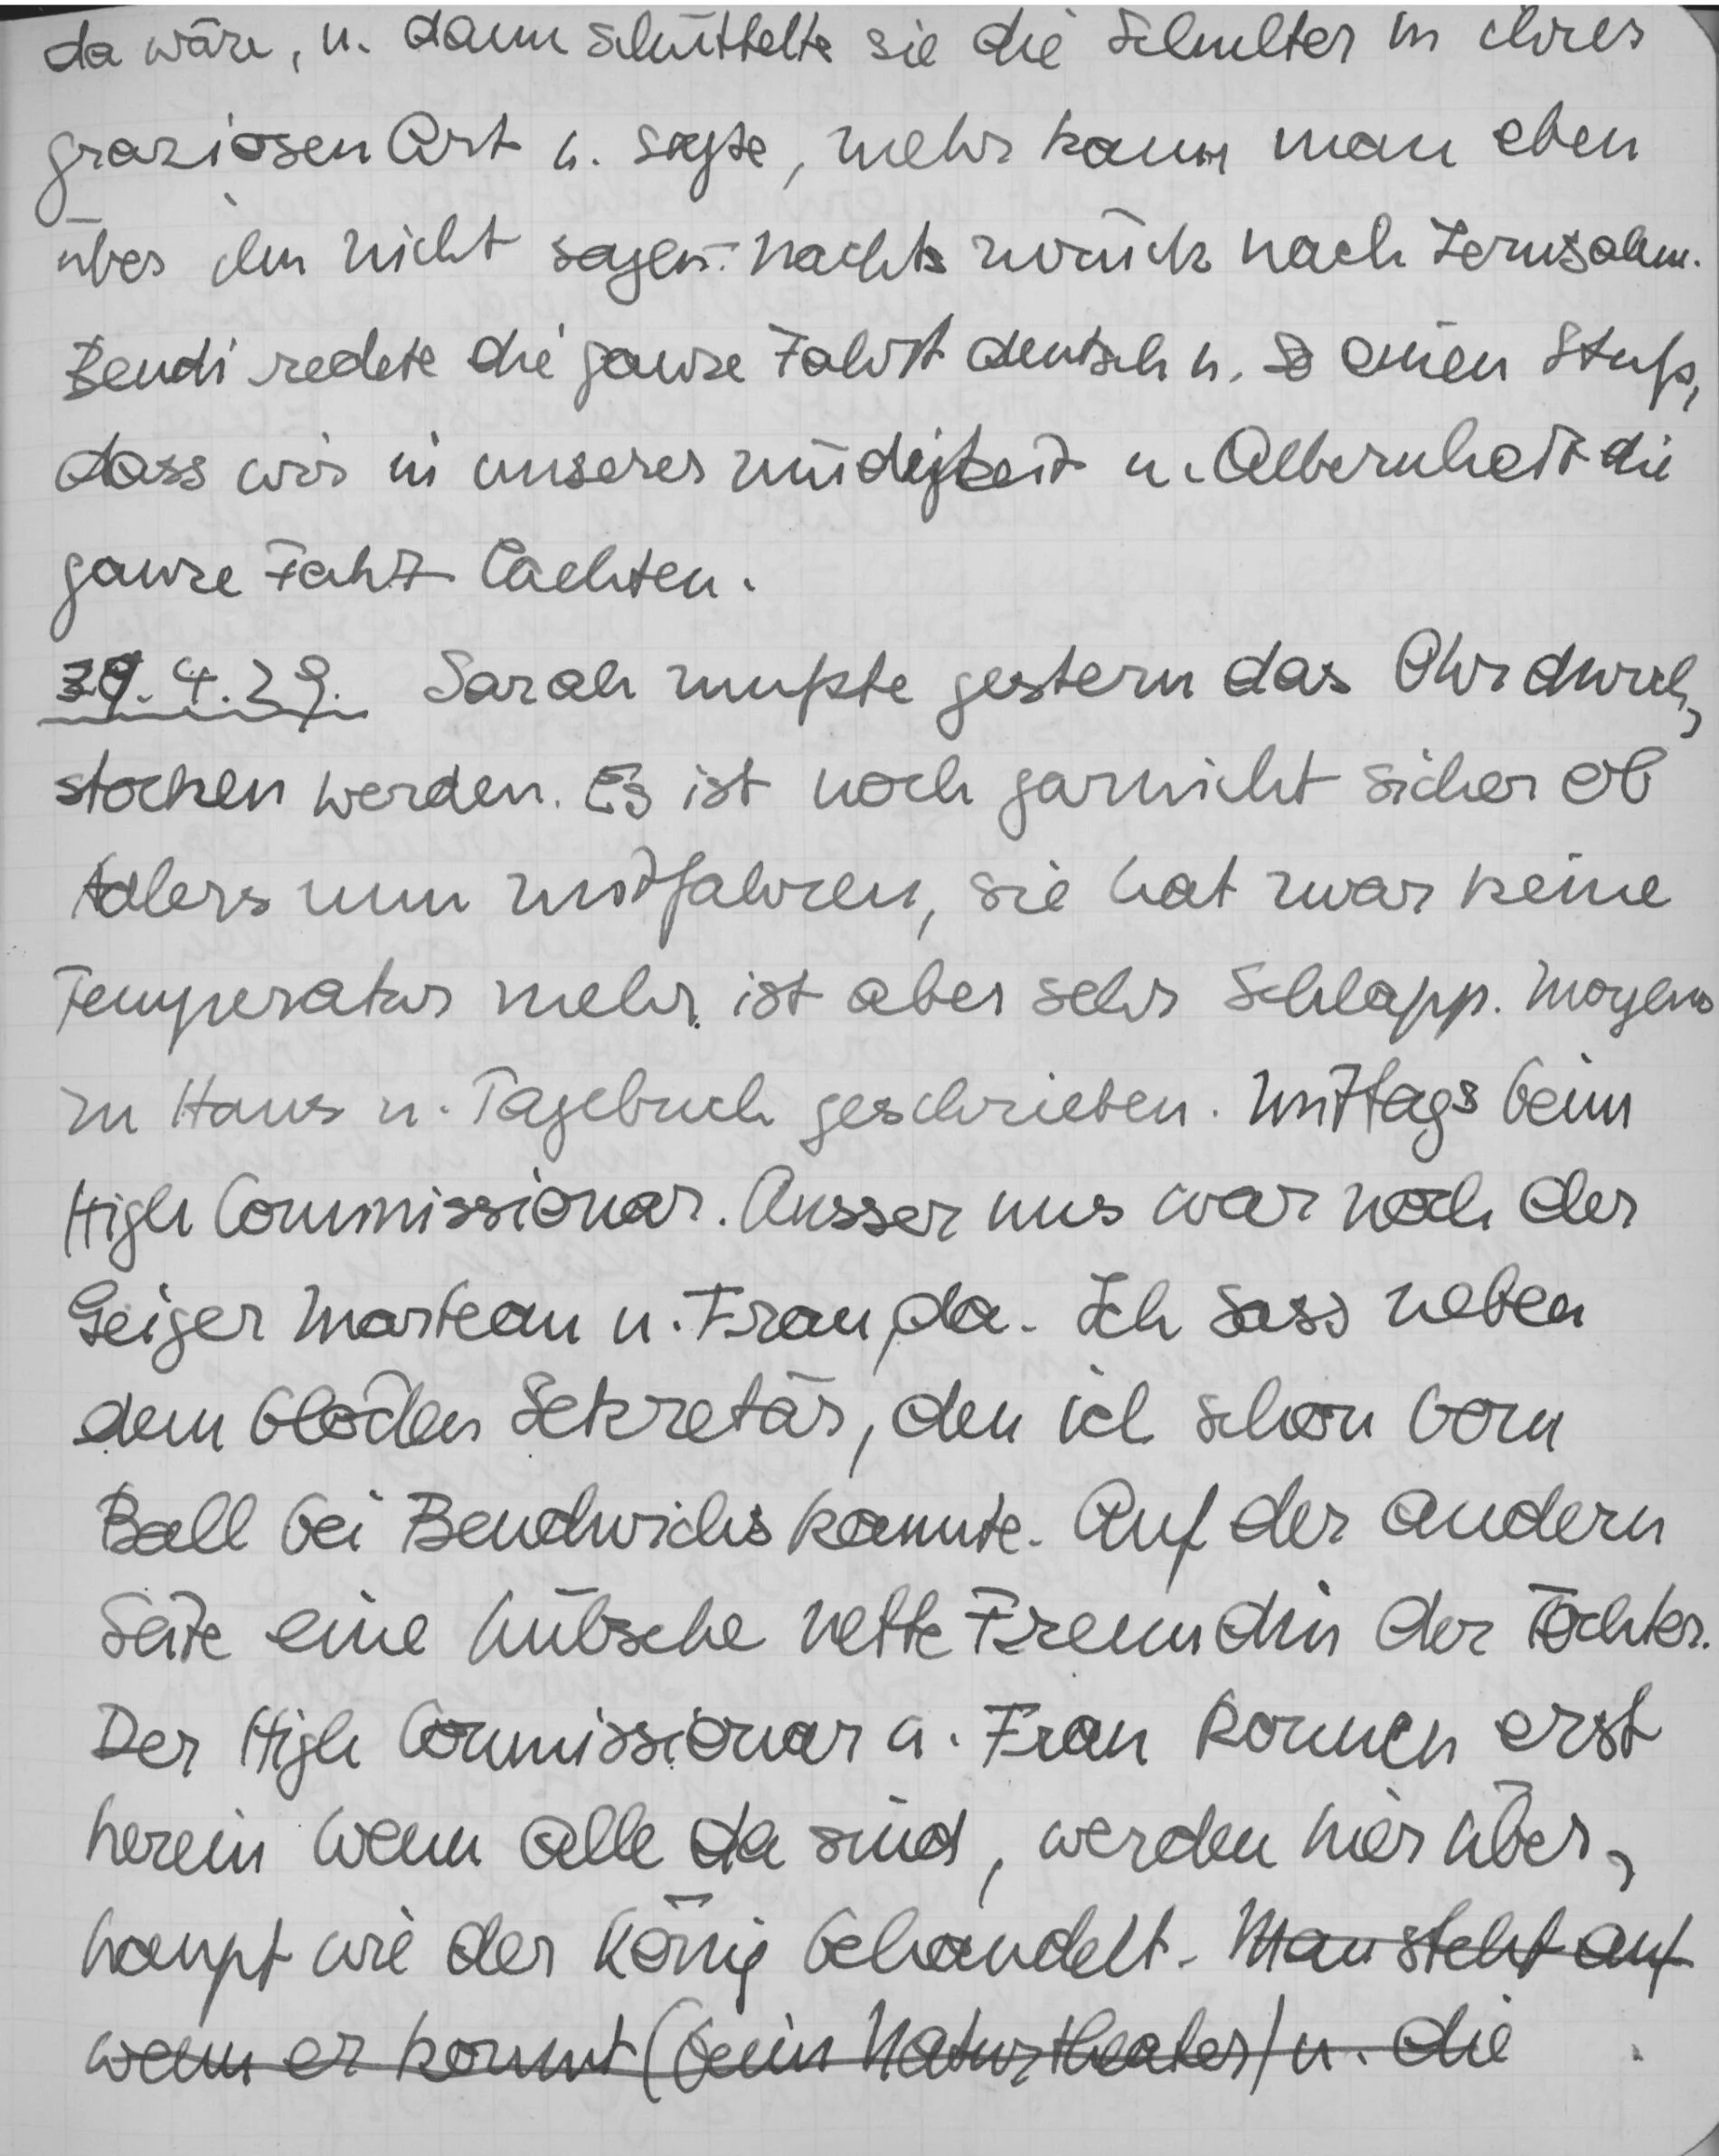 da wäre, u. dann schüttelte sie die Schulter in ihrer
graziösen Art u. sagte, mehr kann man eben
über ihn nicht sagen. Nachts zurück nach Jerusalem.
Bendi redete die ganze Fahrt deutsch u. so einen Stuß,
dass wir in unserer Müdigkeit u. Albernheit die
ganze Fahrt lachten.
29.4.29. Sarah mußte gestern das Ohr durch,
stochen werden. Es ist noch garnicht sicher ob
Adlers nun mitfahren, sie hat zwar keine
Temperatur mehr, ist aber sehr schlapp. Morgens
zu Haus u. Tagebuch geschrieben. Mittags beim
High Commissionar. Ausser uns war noch der
Geiger Marteau u. Frau da. Ich sass neben
dem blöden Sekretär, den ich schon vom
Ball bei Bendwichs kannte. Auf der andern
Seite eine hübsche nette Freundin der Töchter.
Der High Commissionar u. Frau kommen erst
herein wenn alle da sind, werden hier über,
haupt wie der König behandelt. Man steht auf
wenn er kommt (beim Naturtheater) u. die